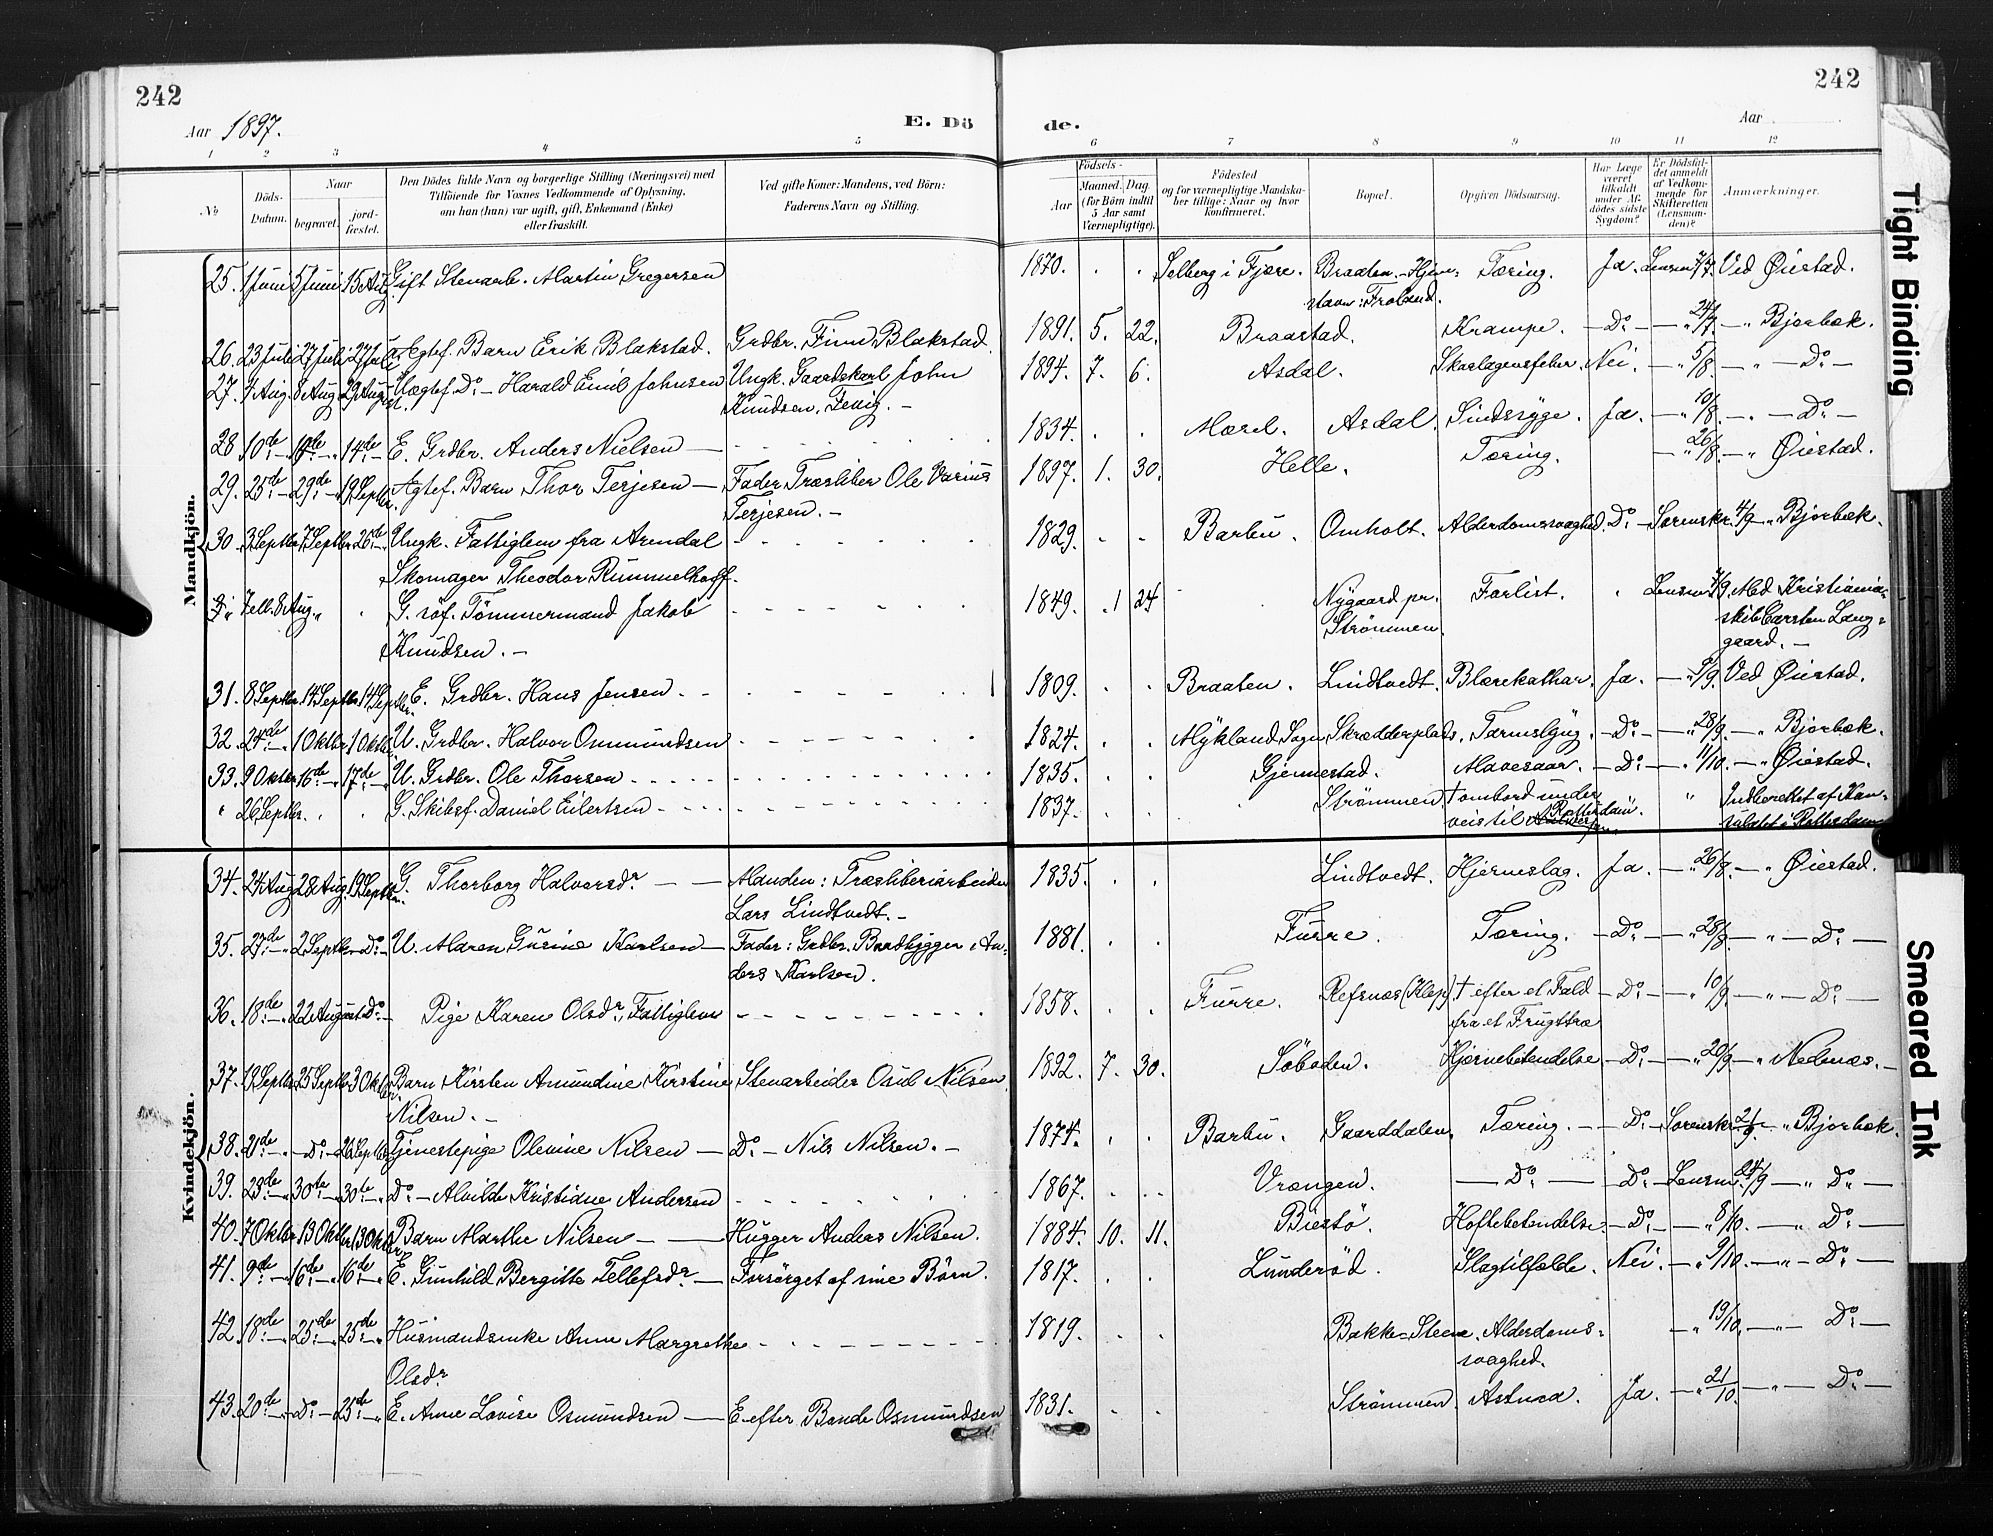 242
242
Aar 1897.
E. Dö
de.
Aar
1 2 3 4 5 6 7 8 9 10 11 12
No
Döds-Datum.
Naar
begravet.
jord-fæstet.
Den Dödes fulde Navn og borgerlige Stilling (Næringsvei) med
Tilföiende for Voxnes Vedkommende af Oplysning,
om han (hun) var ugift, gift, Enkemand (Enke)
eller fraskilt.
Ved gifte Koner: Mandens, ved Börn:
Faderens Navn og Stilling.
Födsels-
Aar
Maaned. Dag.
(for Börn indtil
5 Aar samt
Værnepligtige).
Födested
og for værnepligtige Mandska-
ber tillige: Naar og hvor
konfirmeret.
Bopæl.
Opgiven Dödsaarsag.
Har Læge
været
tilkaldt
under Af-
dödes sidste
Sygdom?
Er Dödsfal-
det anmeldt
af Vedkom-
mende for
Skifteretten
(Lensman-
den)?
Anmærkninger.
Mandkjön.
25. 1 Juni 5 Juni 15 Aug. Gift Stenarb. Martin Gregersen 1870. Selberg i Fjære. Braaten Tæring. Ja. Lensm 7/7. Ved Öiestad.
stavn: Froland.
26. 23 Juli 27 Juli 27 Juli Ægtef. Barn Erik Blakstad. Grdbr. Finn Blakstad 1891. 5. 22. Braastad. Krampe. Do — " 24/7. — " Bjorbæk.
27. 4 Aug. 8 Aug. 29 Aug. Uægtef. Do — Harald Emil Johnsen Ungk. Gaardskarl John 1894. 7. 6. Asdal. Skarlagensfeber. Nei. — " 5/8. — " — Do —
Knudsen, Fevig. —
28 10de — 14de E. Grdbr. Anders Nielsen — 1834. Mærel. Asdal. Sindssyge. Ja. — " 10/8. — " — Do —
29. 25de — 29de — 19 Septbr. Ægtef. Barn Thor Terjesen — Fader Træsliber Ole Varius 1897. 1. 30. Helle. Tæring. — " 26/8. — " Öiestad.
Terjesen. —
30 3 Septbr. 7 Septbr. 26de — Ungk. Fattiglem fra Arendal 1829. Barbu. Omholt. Alderdomssvaghed. Do — Sorenskr. 4/9 — " Bjorbæk.
Skomager Theodor Rummelhoff.
" 7 ell. 8 Aug. " G. söf. Tömmermand Jakob 1849. 1 24 Nygaard pr. Forlist. Lensm 7/9. Med Kristiania-
Knudsen. — Strömmen. skib Carsten Lang-
gaard. —
31. 8 Septbr. 14 Septbr. 14 Septbr. E. Grdbr. Hans Jensen. 1809. Braaten. Lindtvedt. Blærekathar. Ja. — " 9/9. Ved Öiestad.
32. 24de — " 1 Oktbr. 1 Oktbr. U. Grdbr. Halvor Osmundsen 1824. Mykland Sogn Skrædderplads. Tarmslyng. — Do — — " 28/9. — " Bjorbæk.
33. 9 Oktbr. 16de — " 17de — " U. Grdbr. Ole Thorsen 1835. Gjennestad. Mavesaar. — Do — — " 11/10. — " Öiestad.
" 26 Septbr. G. Skibsf. Daniel Eilertsen 1837. Strömmen. † ombord under " Indberettet af Kon-
veis til Rotterdam. sulatet i Rotterdam
Kvindekjön.
34. 24 Aug. 28 Aug. 19 Septbr. G. Thorborg Halvorsdr — Manden: Træsliberiarbeider 1835. Lindtvedt. Hjerneslag. Ja. — " 26/8. — " Öiestad.
Lars Lindtvedt. —
35. 27de — " 2 Septbr. Do — U. Maren Gurine Karlsen — Fader: Grdbr. Baadbygger An- 1881. Furre. Tæring. — Do — — " 28/8. — " — Do —
ders Karlsen.
36. 18de — " 22 August Do — Pige Karen Olsdr, Fattiglem 1858. Furre. Refsnæs (Klep) † efter et Fald — Do — — " 10/9. — " — Do —
fra et Frugttræ
37. 19 Septbr. 25 Septbr. 3 Oktbr. Barn Kirsten Amundine Kirstine Stenarbeider Osul Nilsen. 1892. 7. 30. Söboden. Hjernebetendelse — Do — — " 20/9 — " Nedenæs. —
Nilsen. —
38. 21de — " — Do — 26 Septbr. Tjenestepige Olevine Nilsen — Do — Nils Nilsen. — 1874. Barbu. Gaarddalen. Tæring. — Do — Sorenskr. 21/9. — " Bjorbæk.
39. 23de — " 30te — " 30te — " Do — Alvilde Kristiane Andersen 1867. Vrængen. — Do — Do — Lensm. 24/9 — " Do —
40. 7 Oktbr. 13 Oktbr. 13 Oktbr. Barn Marthe Nilsen — Hugger Anders Nilsen. 1884. 10. 11. Biestö. Hoftebetendelse — Do — — " 8/10. — " Do —
41. 9de — " 16de — " 16de — " E. Gunhild Bergitte Tellefsdr — Forsörget af sine Börn. 1817. Lunderöd. Slagtilfælde. Nei. — " 9/10. — " — Do —
42. 18de — " 25de — " 25de — " Husmandsenke Anne Margrethe 1819. Bakke-Steen. Alderdoms- — " 19/10. — " — Do —
Olsdr svaghed.
43. 20de — " — Do — 25de — " E. Anne Lovise Osmundsen — E. efter Bonde Osmundsen 1831. Strömmen. Astma. Ja. — " 21/10. — " — Do —
Tight Binding
Smeared Ink